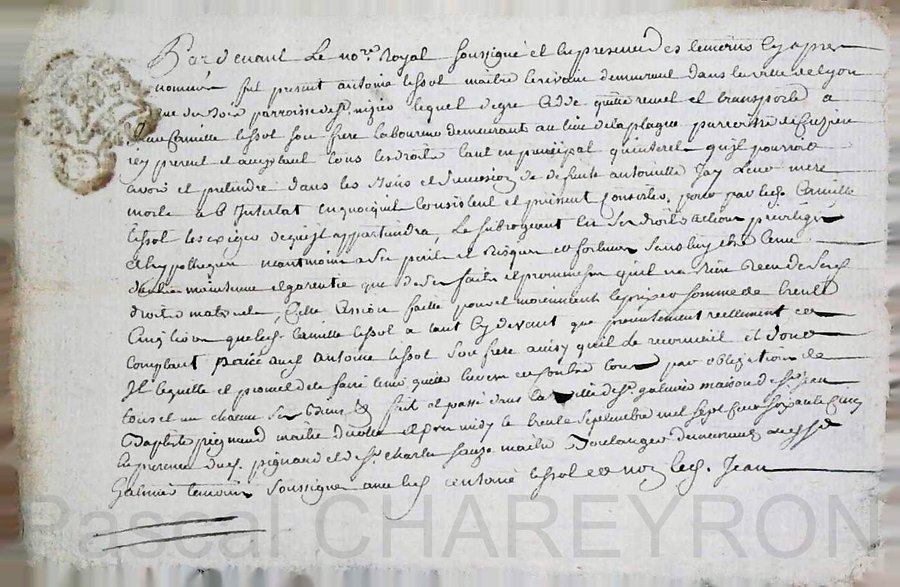 Pardevant Le no.re Royal soussigné et en presence des temoins cy apres
nommés fut present antoine tessot maitre ecrivain demeurant dans la ville de lyon
rue du Bois parroisse de st nizier lequel de gré a cedé quitte remet et transporte a
Camille tessot son frere laboureur demeurant au lieu de laplagne parroisse de
icy present et acceptant tous les droits tant en principal qu'interet qu'il pourroit
avoir et pretendre dans les Biens et succession de defunte antoinette Jay leur mere
morte a b Intestat en quoy qu'il consistent et puissent consister, pour par led. Camille
tessot les exiger de qui il appartiendra, Le subrogeant en ses droits actions privileges
et hypotheques neantmoins a ses perils et risques et fortunes sans luy etre tenu
d'autre maintenue et garentie que de ses faits et promesses qu'il n'a Rien Receu de sesd.
droits maternels, Cette Cession faite pour et moiennant le prix et somme de trente
Cinq livres que led. Camille tessot a tant cy devant que presentement reellement et
comptant payée aud. antoine tessot son frere ainsy qu'il le reconnoit et dont
Il le quitte et promet de faire tenir quitte envers et contre tous par obligation de
tous et un chacun ses Biens fait et passé dans la ville de st galmier maison de sr Jean
Baptiste pignaud maitre apres midy le trente septembre mil sept cent soixante cinq
En presence dud. sr pignaud et de sr charles sauze maitre Boulanger demeurant aud. st
Galmier temoins soussignés avec led. antoine tessot et non led. Jean
Pascal CHAREYRON